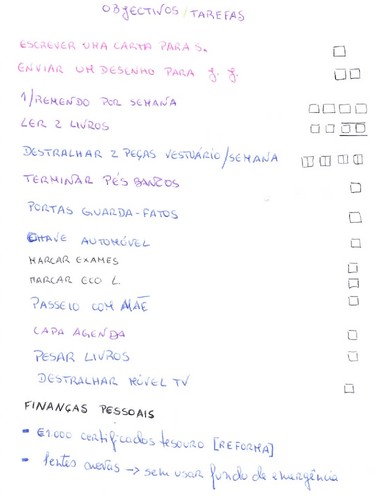 OBJECTIVOS/TAREFAS
ESCREVER UMA CARTA PARA S.
ENVIAR UM DESENHO PARA J. J.
1/REMENDO POR SEMANA
LER 2 LIVROS
DESTRALHAR 2 PEÇAS VESTUÁRIO/SEMANA
TERMINAR PÉS BANCOS
PORTAS GUARDA-FATOS
CHAVE AUTOMÓVEL
MARCAR EXAMES
MARCAR ECO L.
PASSEIO COM MÃE
CAPA AGENDA
PESAR LIVROS
DESTRALHAR MÓVEL TV
FINANÇAS PESSOAIS
- €1.000 certificados tesouro [REFORMA]
- lentes novas → sem usar fundo de emergência